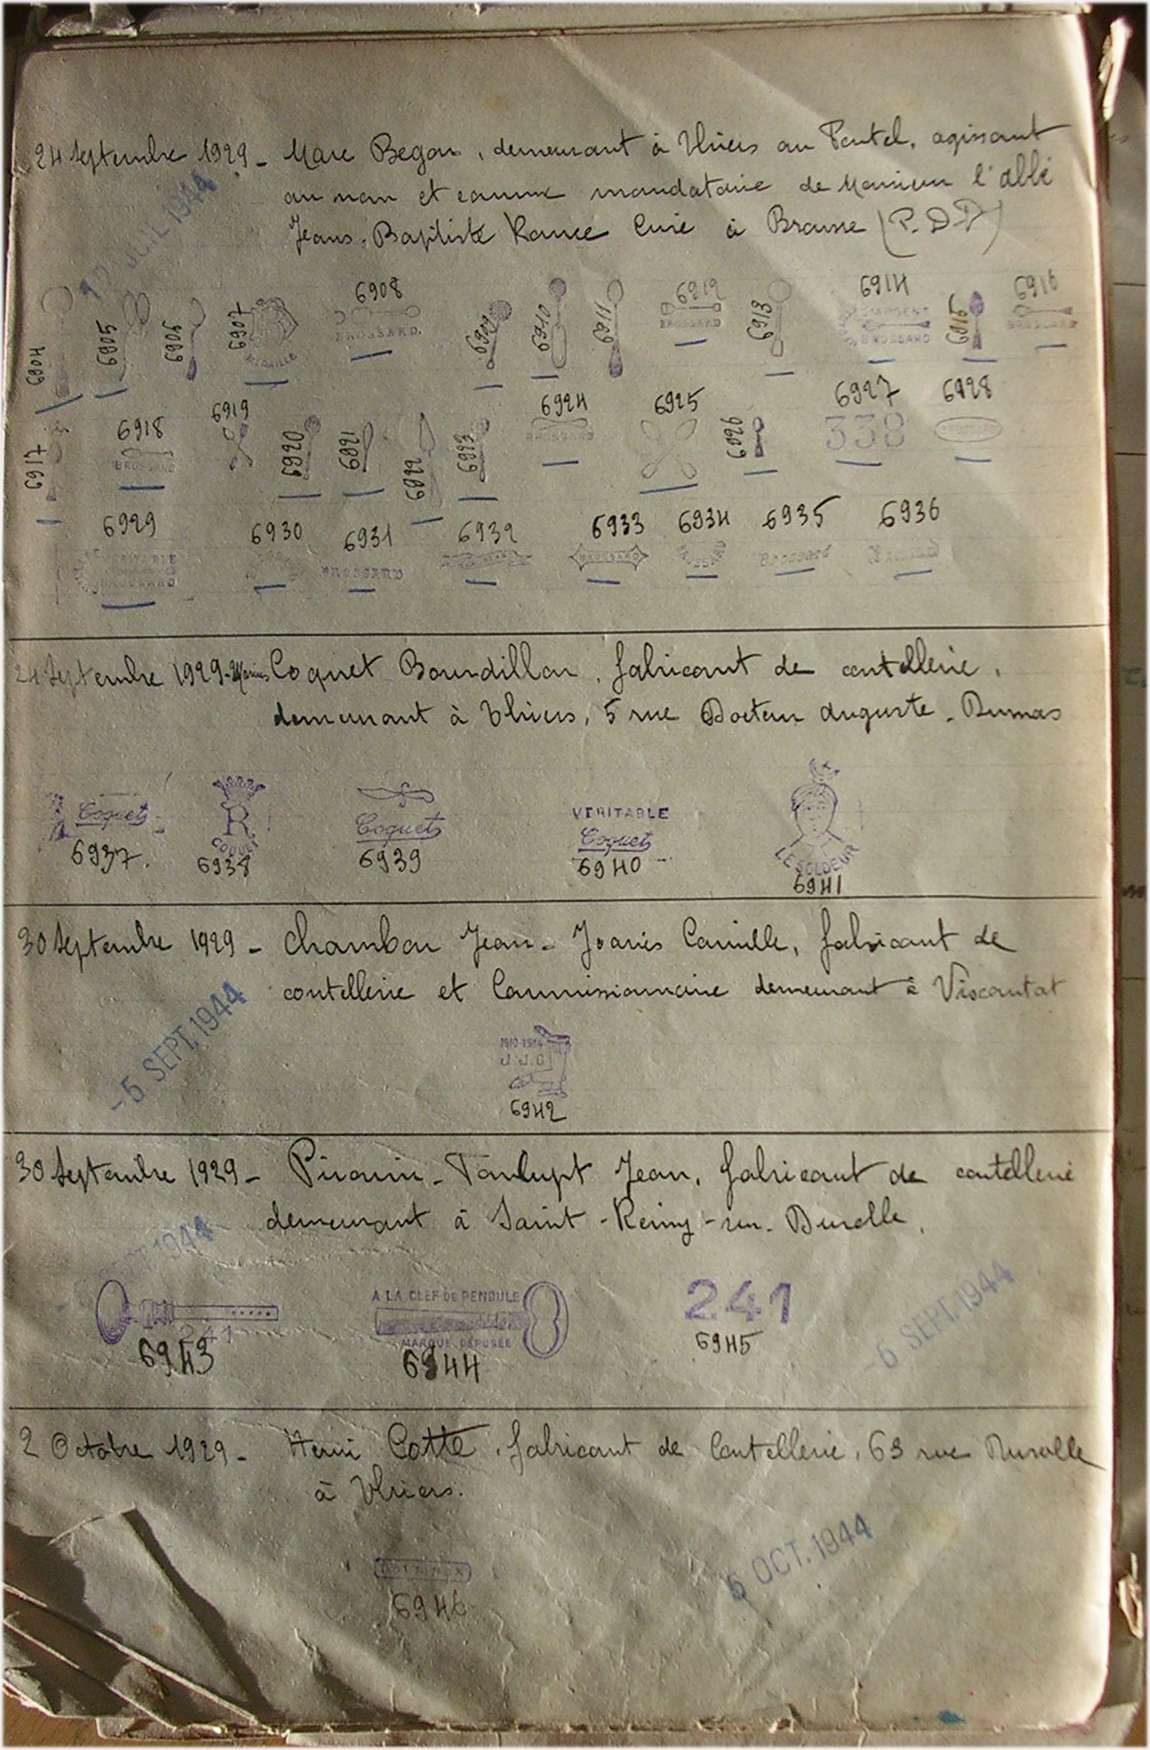 24 Septembre 1929 - Marc Begon, demeurant à Thiers au Pontel, agissant
au nom et comme mandataire de Monsieur l'abbé
Jeans-Baptiste Rance Curé à Brousse (P.-D-D)
JUIL 1944
6904 6905 6906 6907 6908 6909 6910 6911 6912 6913 6914 6915 6916
BROSSARD. BROSSARD BROSSARD BROSSARD
6917 6918 6919 6920 6921 6922 6923 6924 6925 6926 6927 6928
BROSSARD BROSSARD 338
6929 6930 6931 6932 6933 6934 6935 6936
VERITABLE
BROSSARD BROSSARD BROSSARD Brossard
24 Septembre 1929 - Coquet Bourdillon, fabricant de coutellerie,
demeurant à Thiers, 5 rue Docteur Auguste-Dumas
Coquet R COQUET Coquet VERITABLE Coquet LE SOLDEUR
6937. 6938 6939 6940 6941
30 Septembre 1929 - Chambon Jean-Joanès Camille, fabricant de
coutellerie et Commissionnaire demeurant à Viscontat
-5 SEPT. 1944
1910-1914
6942
30 Septembre 1929 - Pironin-Tarlupt Jean, fabricant de coutellerie
demeurant à Saint-Remy-sur-Durolle.
1944
241
6943
A LA CLEF DE PENDULE
MARQUE DÉPOSÉE
6944
241
6945
6 SEPT. 1944
2 Octobre 1929 - Henri Cotte, fabricant de Coutellerie, 63 rue Durolle
à Thiers.
6946
6 OCT. 1944